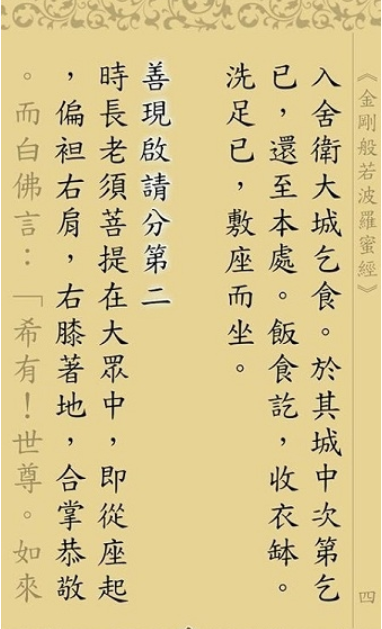 《金剛般若波羅蜜經》
四
入舍衛大城乞食。於其城中次第乞
已,還至本處。飯食訖,收衣缽。
洗足已,敷座而坐。
善現啟請分第二
時長老須菩提在大眾中,即從座起
,偏袒右肩,右膝著地,合掌恭敬
。而白佛言:「希有!世尊。如來